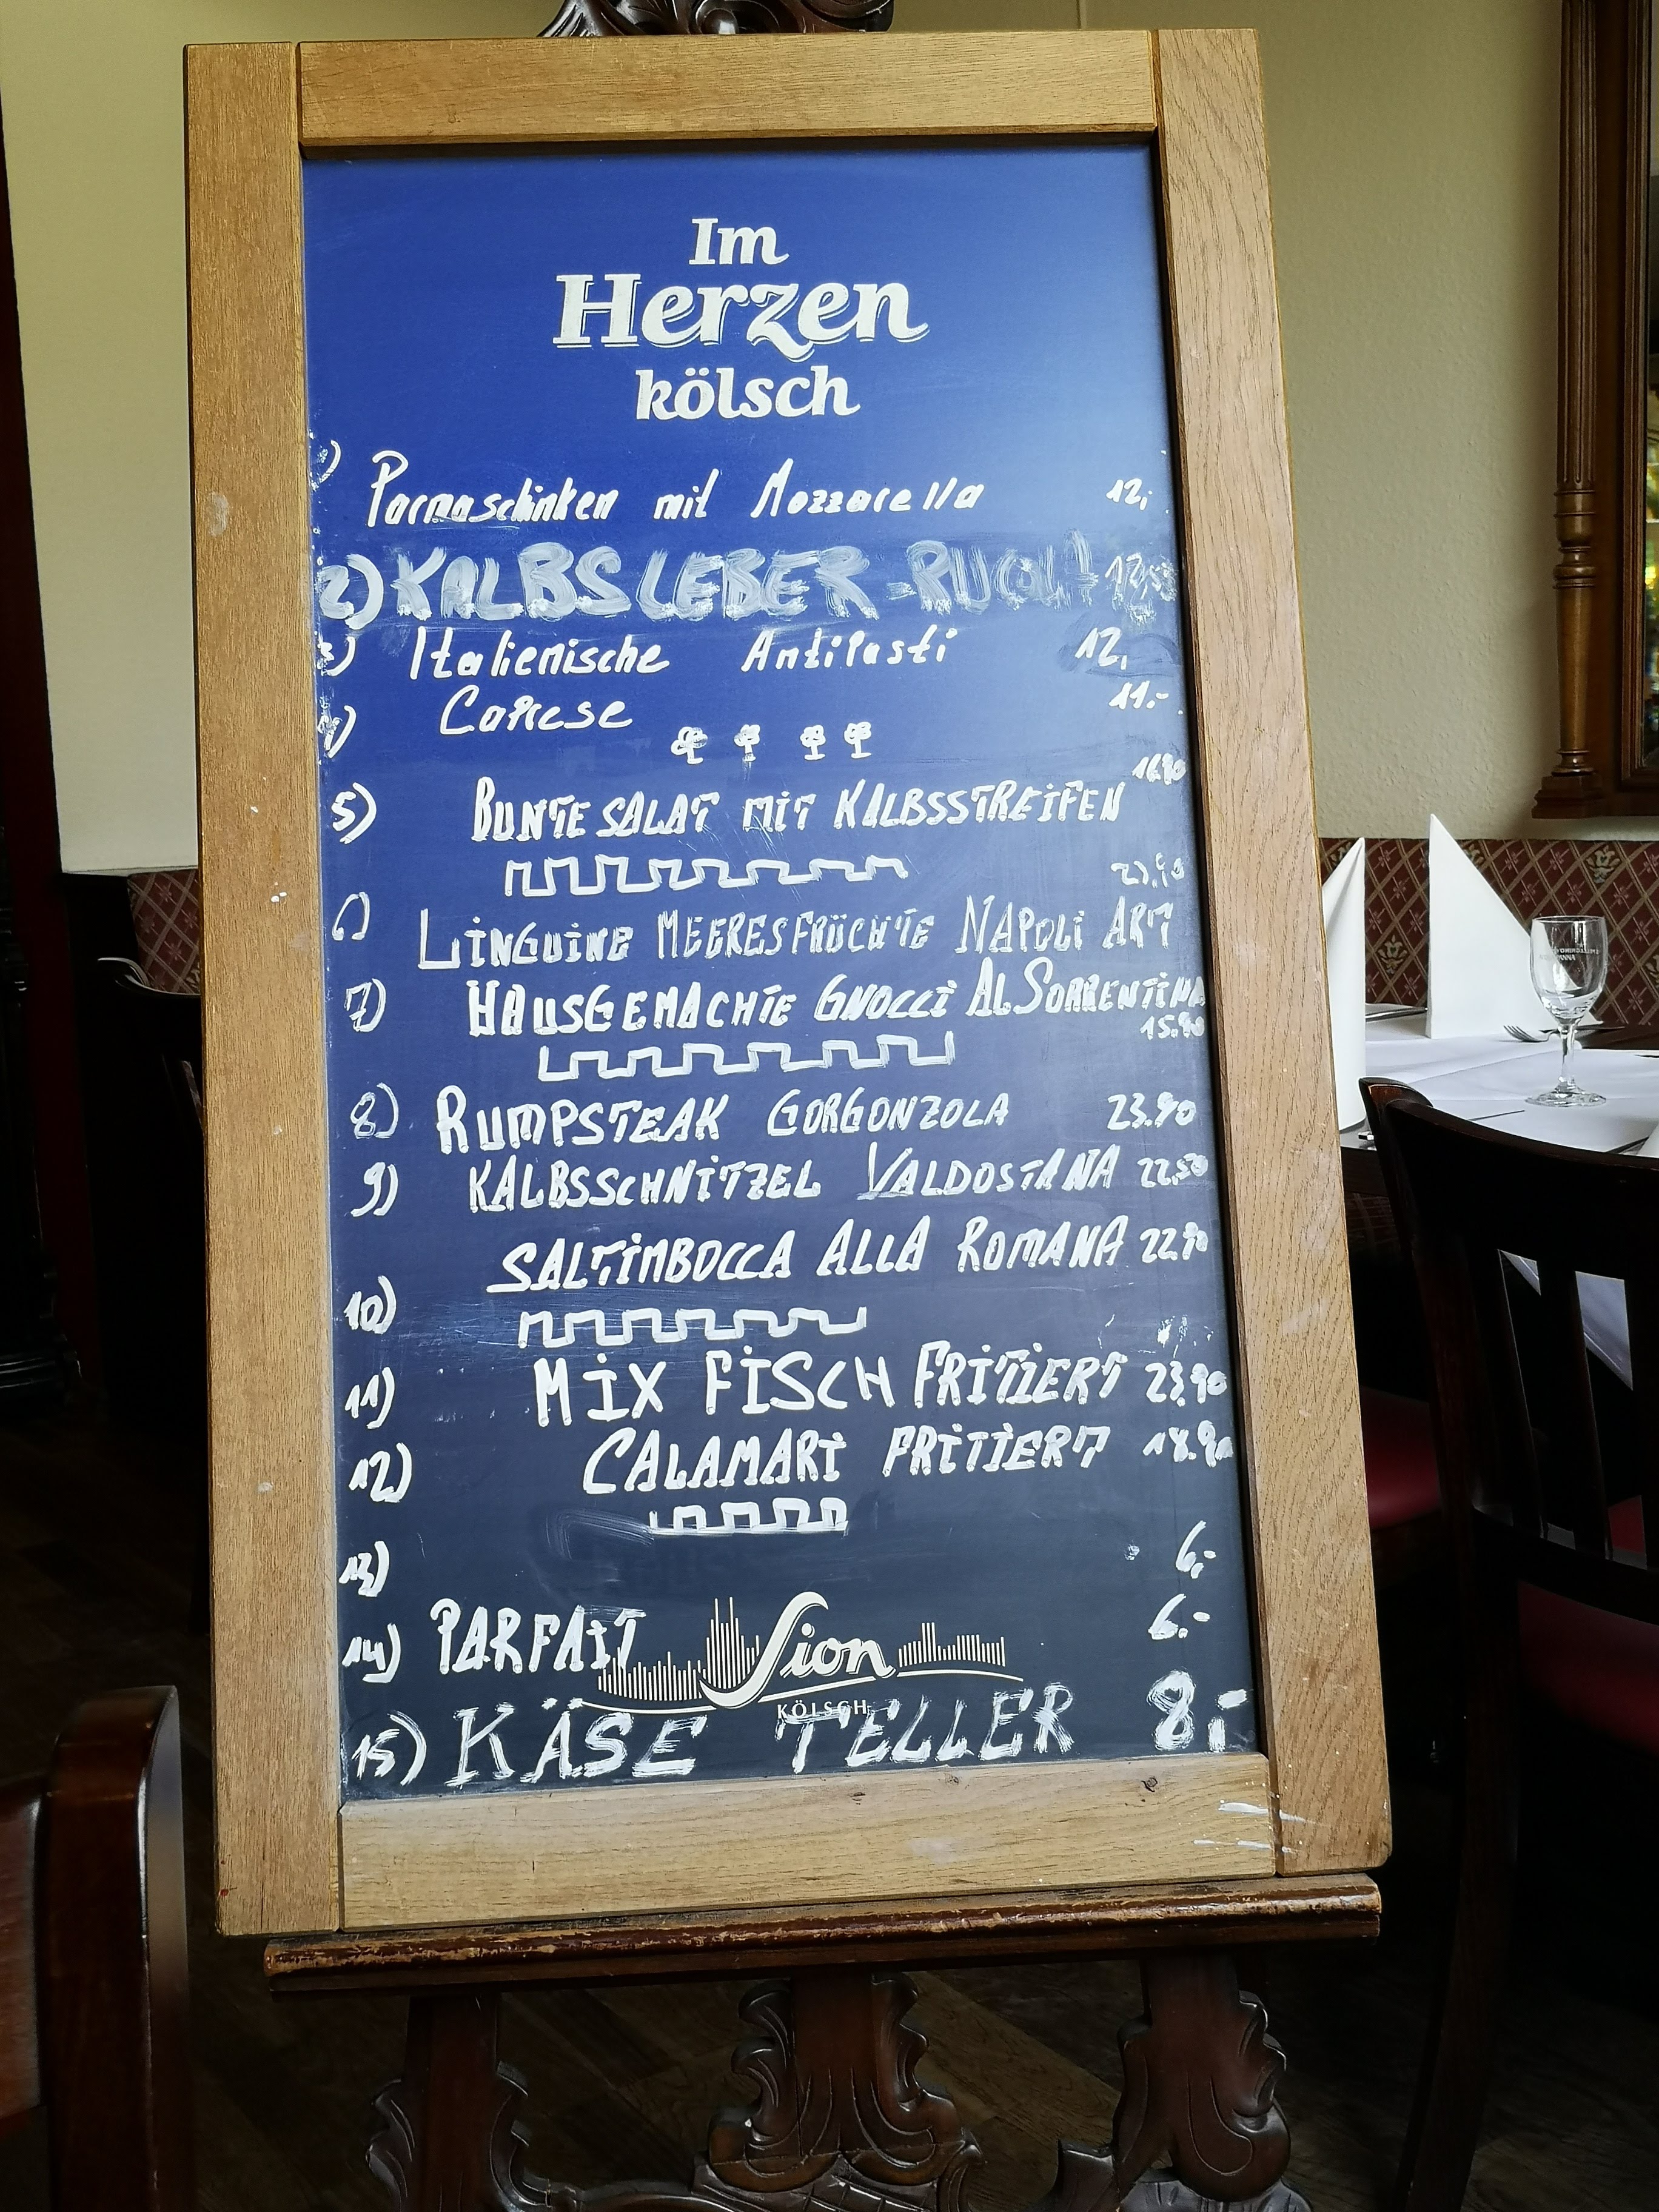 Im
Herzen
kölsch
1) Parmaschinken mit Mozzarella 12,-
2) KALBSLEBER-RUCOLA
3) Italienische Antipasti 12,
4) Caprese 11.-
16.90
5) BUNTE SALAT MIT KALBSSTREIFEN
23.90
6) LINGUINE MEERESFRÜCHTE NAPOLI ART
7) HAUSGEMACHTE GNOCCI AL SORRENTINA
15.90
8) RUMPSTEAK GORGONZOLA 23.90
9) KALBSSCHNITZEL VALDOSTANA 22,50
SALTIMBOCCA ALLA ROMANA 22.90
10)
11) MIX FISCH FRITIERT 23,90
12) CALAMARI FRITIERT 18.90
13) 6,-
14) PARFAIT 6.-
Sion
KÖLSCH
15) KÄSE TELLER 8,-